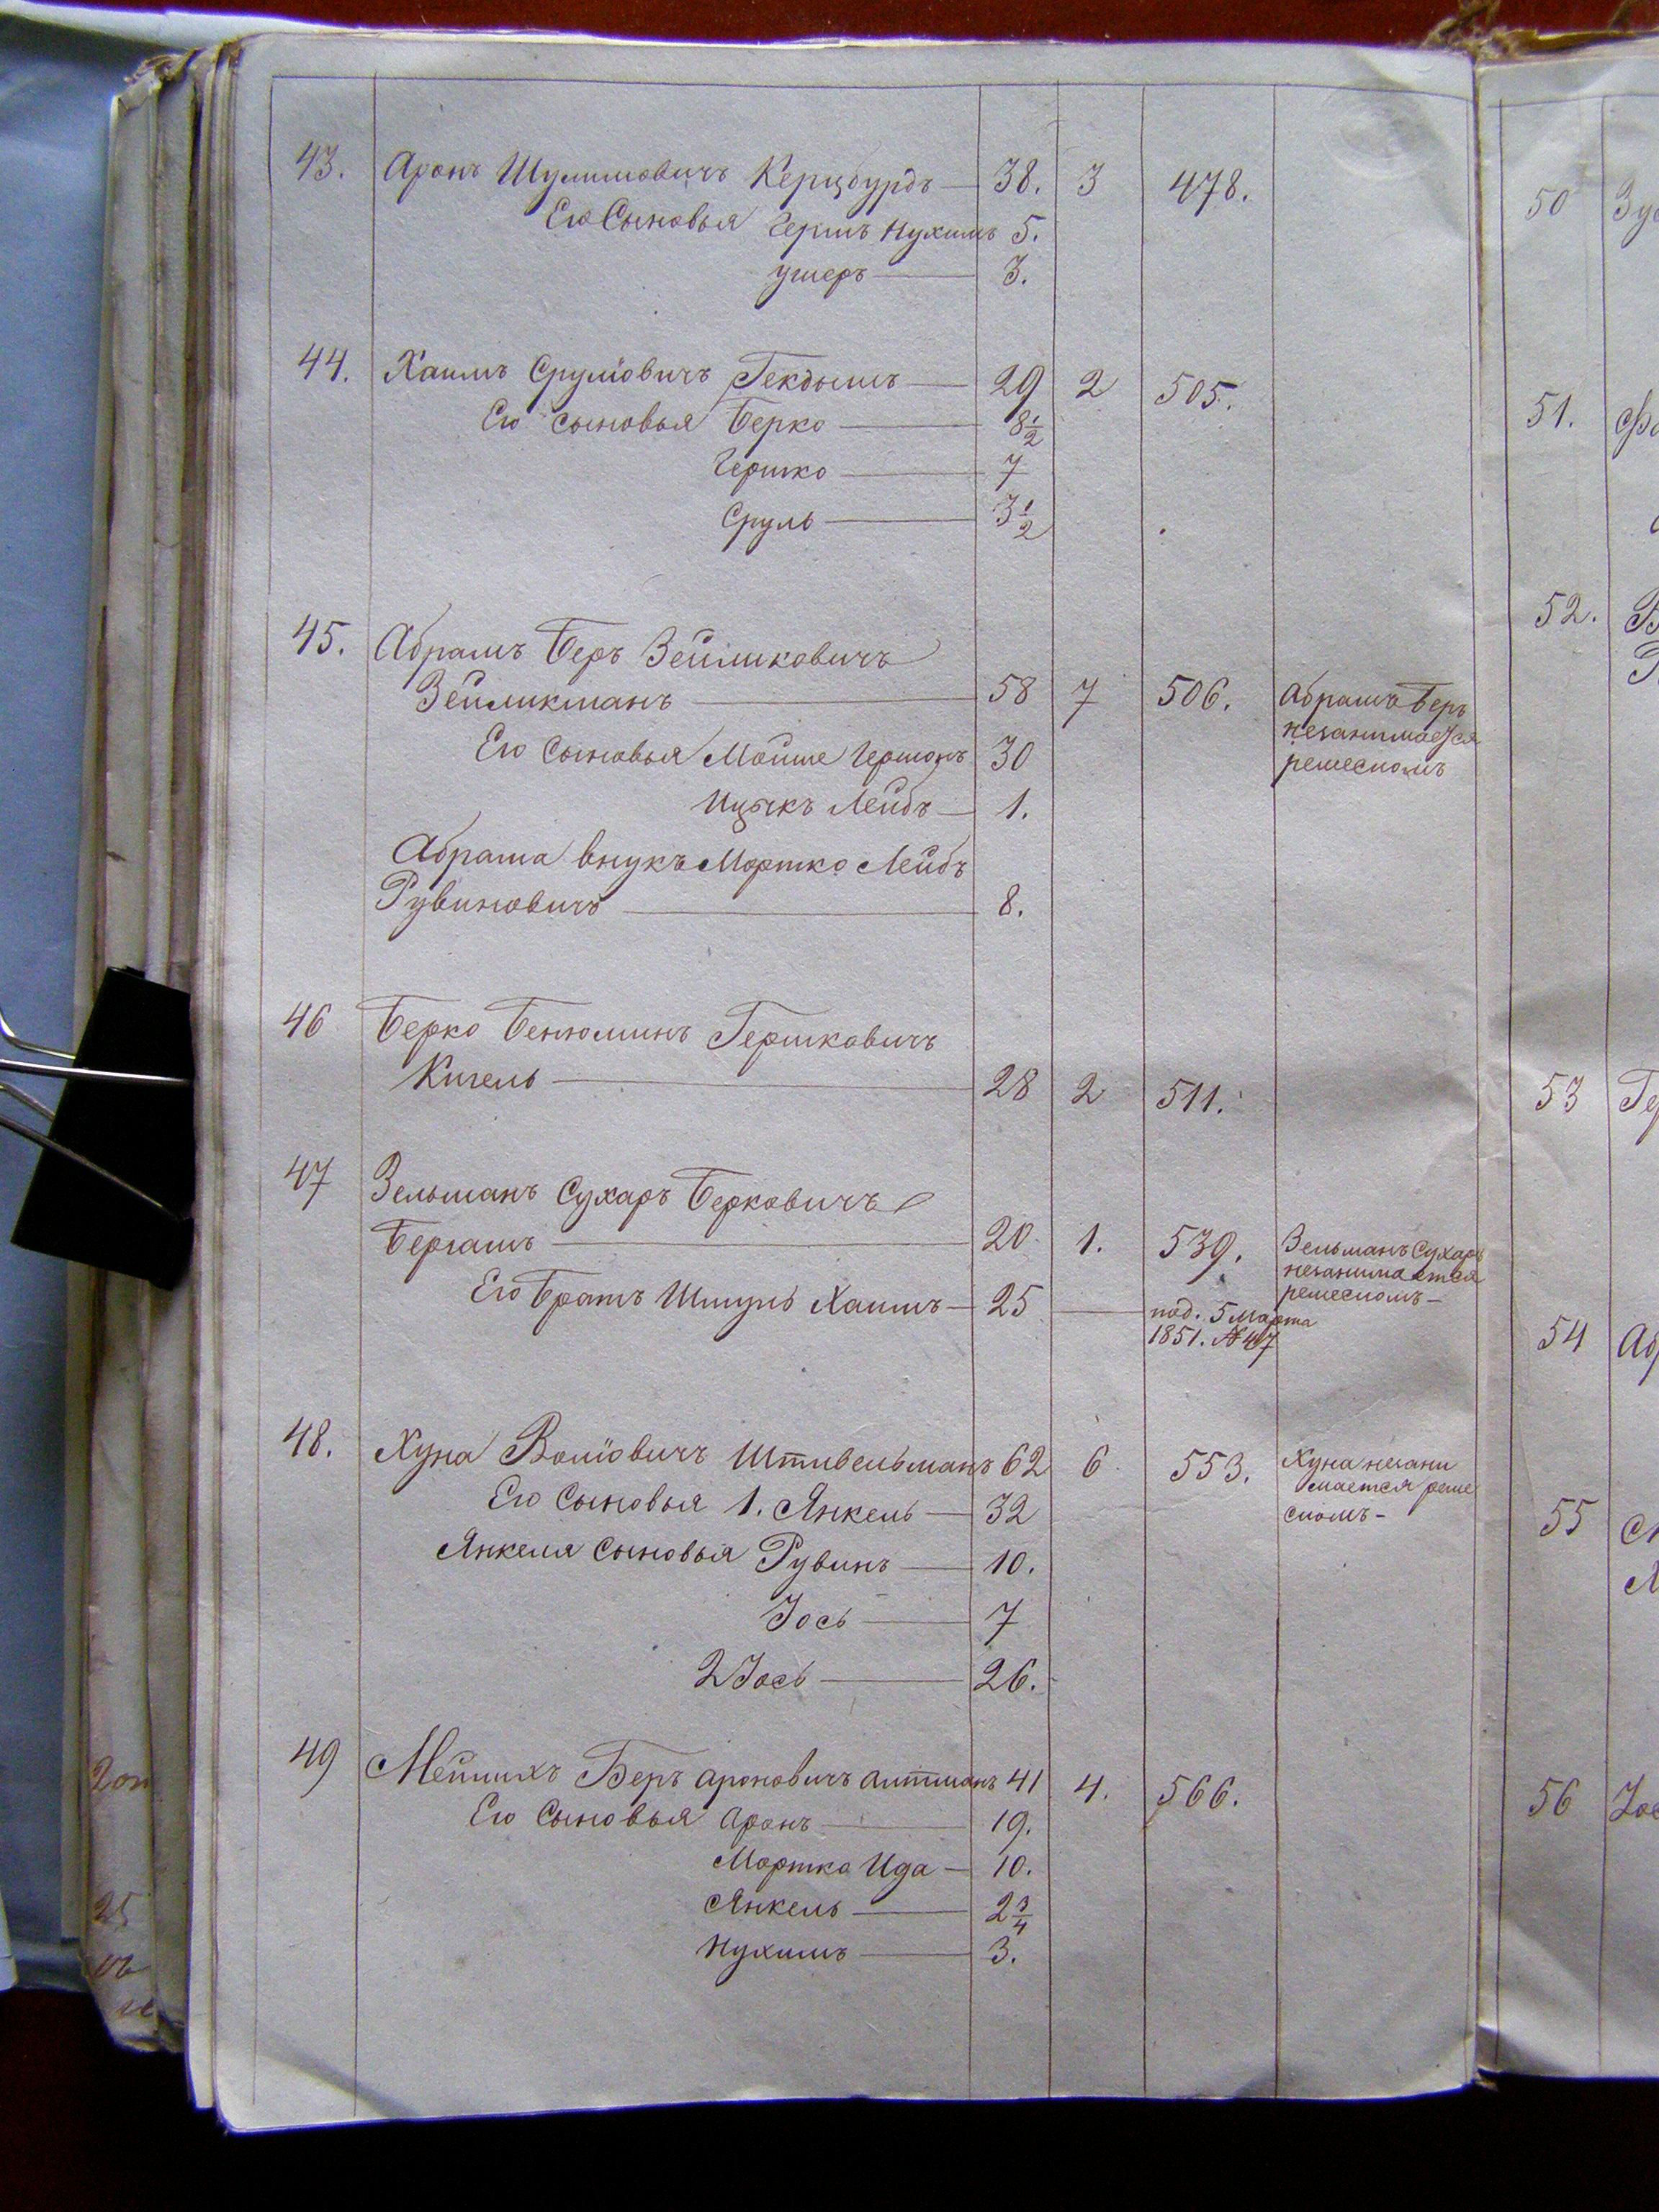 43. Аронъ Шулимовичъ Керцбурдъ — 38. 3 478.
Его Сыновья Гершъ Нухимъ 5.
Ушеръ — 3.
44. Хаимъ Сруліовичъ Гекдышъ — 29 2 505.
Его сыновья Берко — 8½
Гершко — 7
Сруль — 3½
45. Абрамъ Беръ Зейликовичъ
Зейликманъ — 58 7 506. Абрамъ Беръ
незанимается
ремесломъ
Его Сыновья Мойше Гершонъ 30
Ицыкъ Лейбъ — 1.
Абрама внукъ Мортко Лейбъ
Рувиновичъ — 8.
46 Берко Бенюминъ Гершковичъ
Кигель — 28 2 511.
47 Зельманъ Сухаръ Берковичъ
Бергашъ — 20 1. 539. Зельманъ Сухаръ
незанимается
ремесломъ —
Его Братъ Шмуль Хаимъ — 25 — под. 5 Марта
1851. № 47
48. Хуна Воліовичъ Штивельманъ 62 6 553. Хуна незани
мается реме
сломъ —
Его Сыновья 1. Янкель — 32
Янкеля Сыновья Рувинъ — 10.
Іось — 7
2 Іось — 26.
49 Мейлихъ Беръ Ароновичъ Аитманъ 41 4. 566.
Его Сыновья Аронъ — 19.
Мортко Ида — 10.
Янкель — 2¾
Нухимъ — 3.
50
51.
52.
53
54
55
56